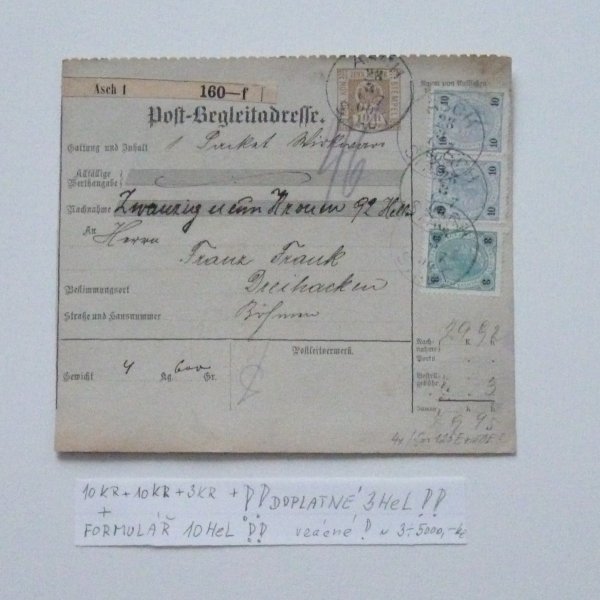 Asch 1 160—f
Post-Begleitadresse.
Gattung und Inhalt 1 Packet Wirkwaren
Allfällige
Werthangabe
46
Nachnahme Zwanzig neun Kronen 92 Heller
An Herrn
Franz Frank
Bestimmungsort Dreihacken
Straße und Hausnummer Böhmen
Gewicht 4 Kg. 600 Gr.
Postleitvermerk.
10 10
10 10
3 3
ASCH
Nach-
nahme 29 92
Porto
Bestell-
gebühr 3
29 95
10KR+10KR+3KR + !! DOPLATNÉ 3HeL !!
+
FORMULÁŘ 10HeL !! vzácné! ~ 3-5000,-kč